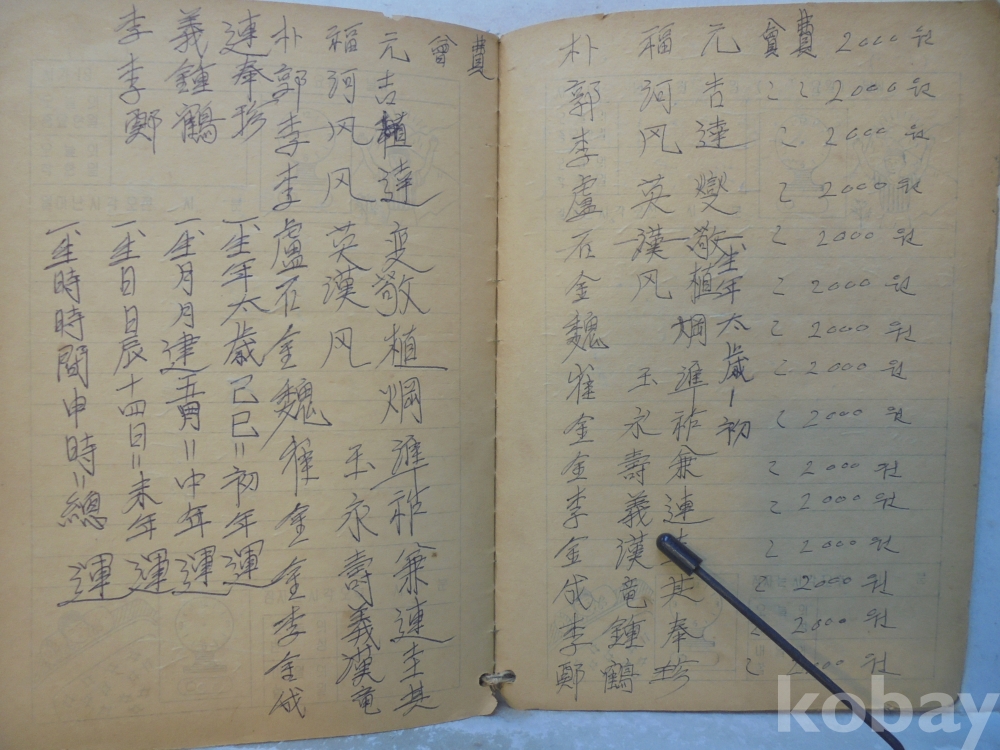 李 義 連
李 鍾 奉
鄭 鶴 珍
會費
朴 福 元
郭 河 吉
李 风 植
李 风 達
盧 英 变
石 漢 敬
金 风 植
魏 炯
崔 玉 進
金 永 祚
金 壽 兼
李 義 連
金 漢 圭
成 竜 其
一生年太歲己巳=初年運
一生月月建五月=中年運
一生日日辰十四日=末年運
一生時時間申時=總運
朴 福 元 會費 2000원
郭 河 吉 〃 〃 2000원
李 风 達 〃 2000원
盧 英 燮 〃 2000원
石 漢 敬 〃 2000원
金 风 植 〃 2000원
魏 炯 〃 2000원
崔 玉 進 〃 2000원
金 永 祚 〃 2000원
金 壽 兼 〃 2000원
李 義 連 〃 2000원
金 漢 〃 2000원
成 竜 其 〃 2000원
李 鍾 奉 〃 2000원
鄭 鶴 珍 〃 2000원
一生年太歲-初
kobay